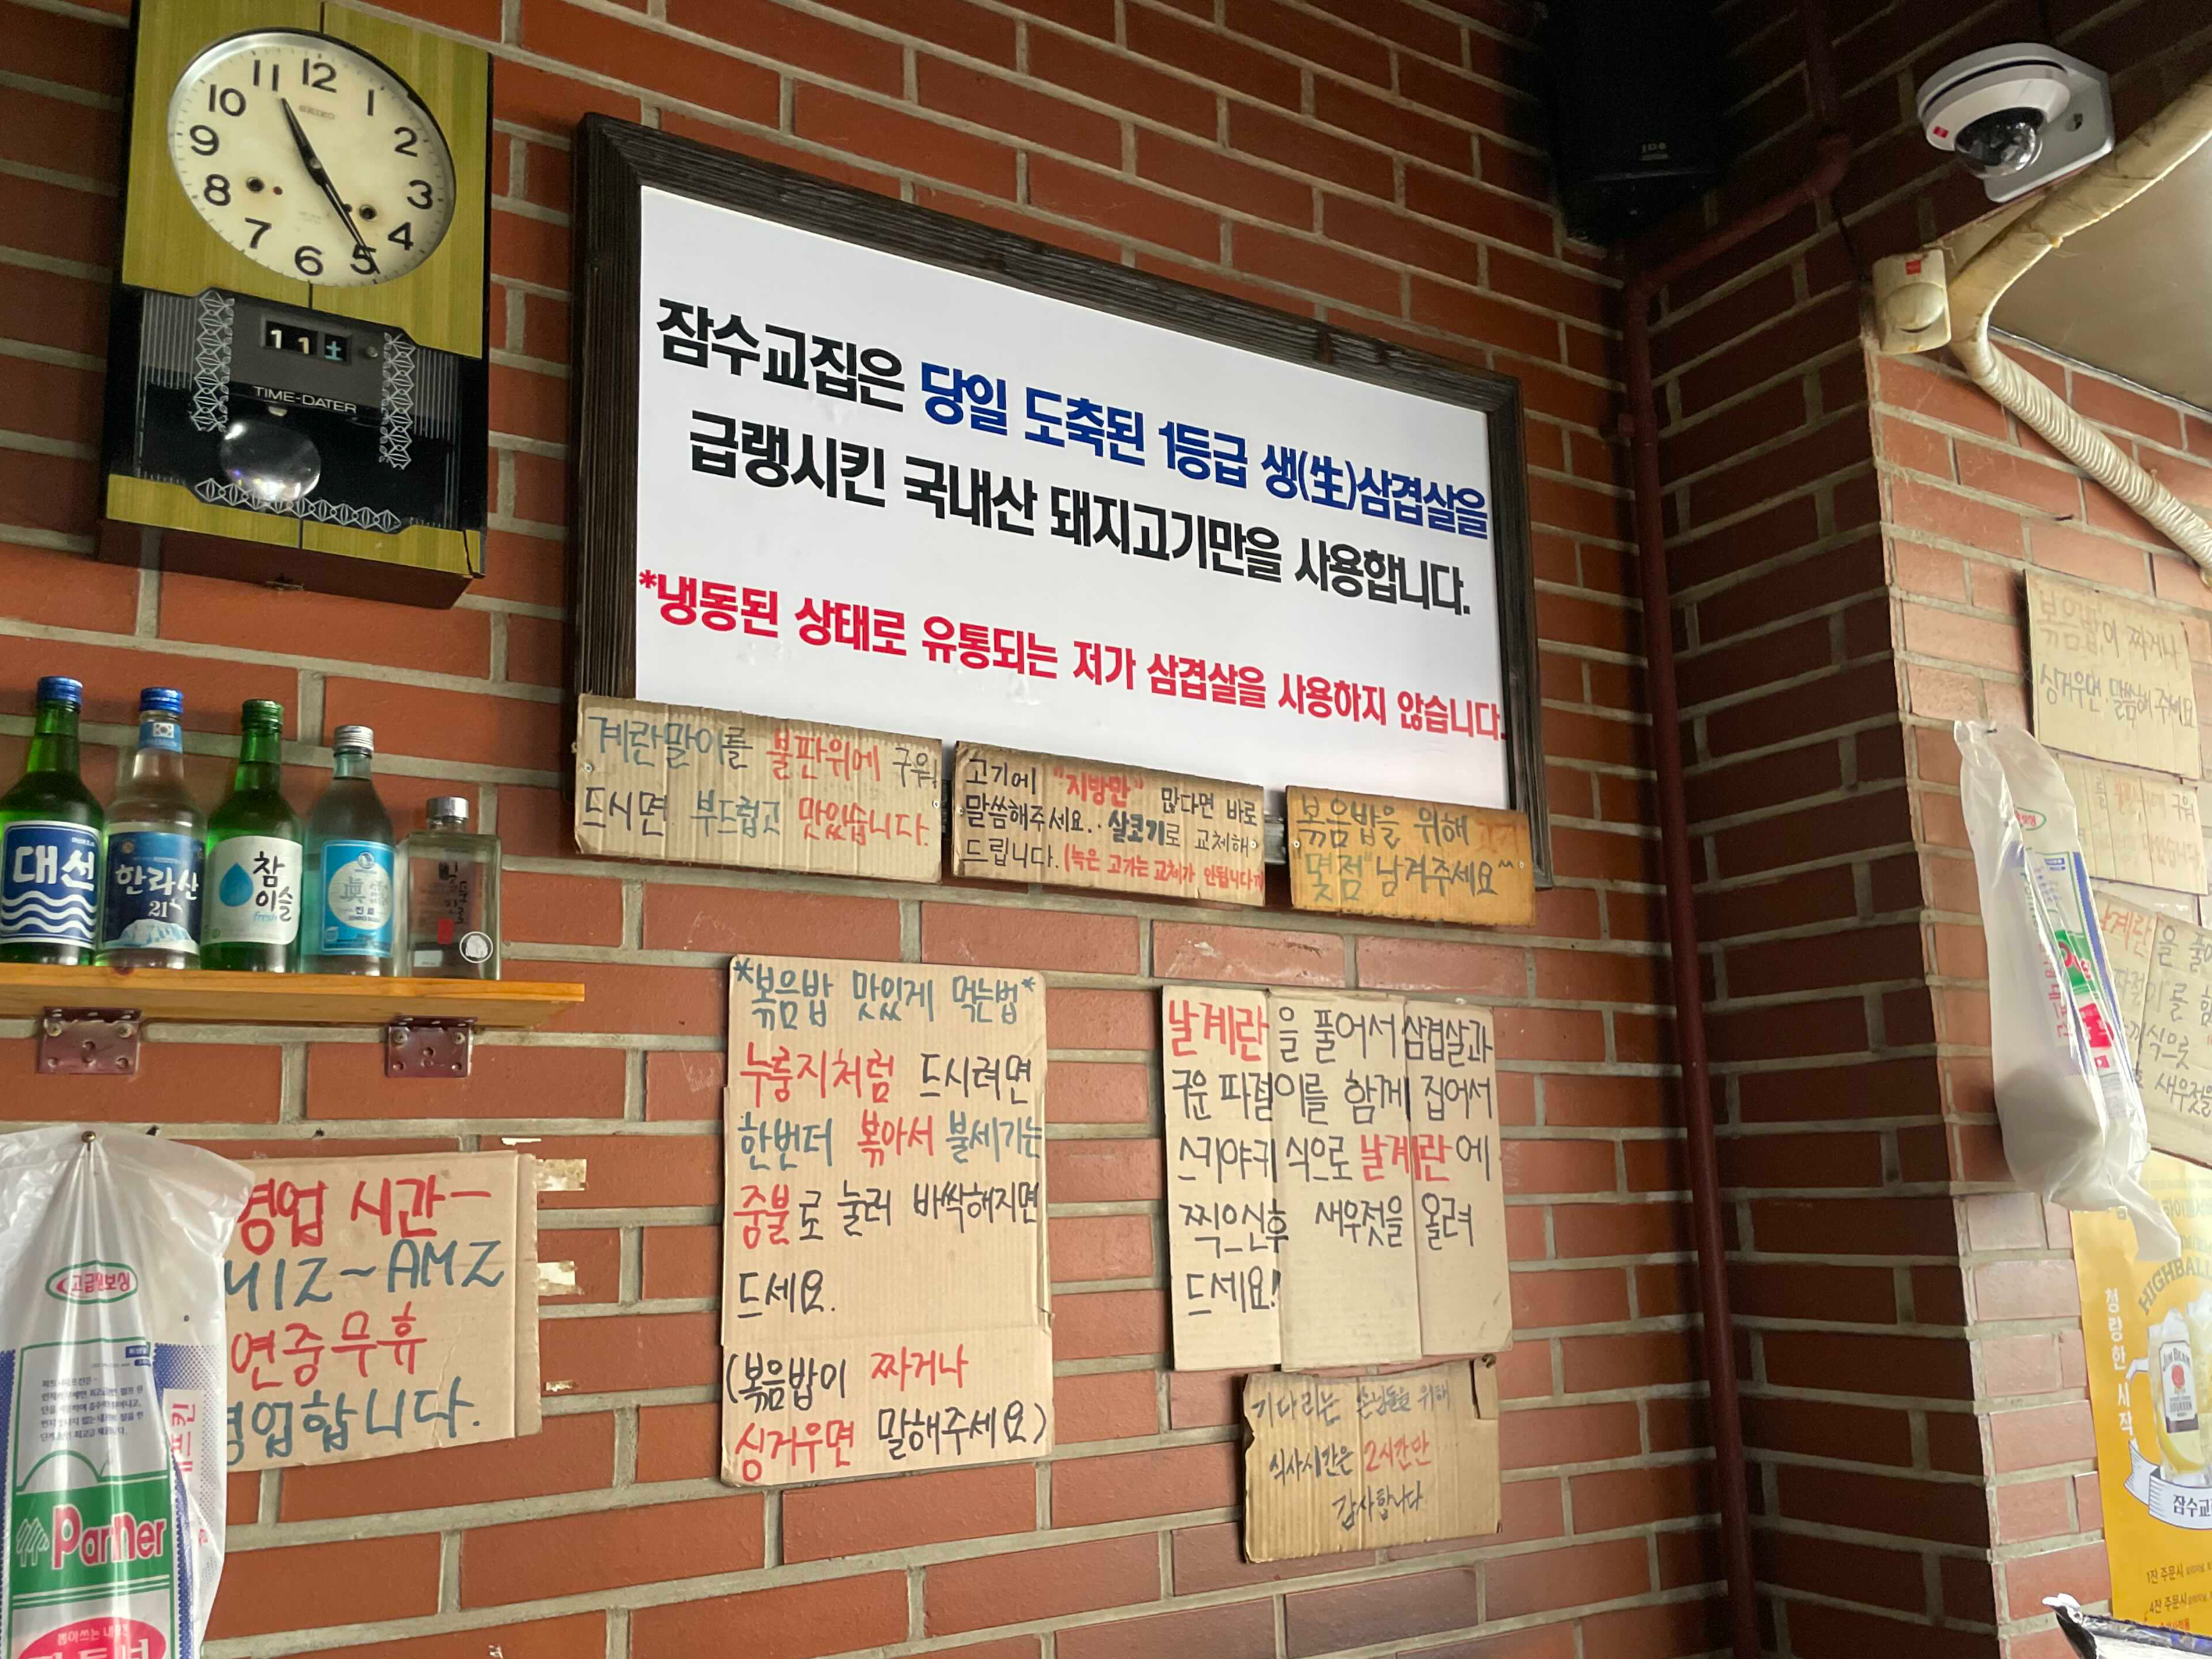 11 12 1
10 2
9 3
8 4
7 6 5
SEIKO
11 土
TIME-DATER
잠수교집은 당일 도축된 1등급 생(生)삼겹살을
급랭시킨 국내산 돼지고기만을 사용합니다.
*냉동된 상태로 유통되는 저가 삼겹살을 사용하지 않습니다.
계란말이를 불판위에 구워
드시면 부드럽고 맛있습니다.
고기에 "지방만" 많다면 바로
말씀해주세요.. 살코기로 교체해
드립니다. (녹은 고기는 교체가 안됩니다
볶음밥을 위해 고기
"몇점" 남겨주세요^^
대선
한라산
21
참
이슬
fresh
眞露
진로
*볶음밥 맛있게 먹는법*
누룽지처럼 드시려면
한번더 볶아서 불세기는
중불로 눌러 바싹해지면
드세요.
(볶음밥이 짜거나
싱거우면 말해주세요)
날계란을 풀어서 삼겹살과
구운 파절이를 함께 집어서
스키야키 식으로 날계란에
찍으신후 새우젓을 올려
드세요!
기다리는 손님들을 위해
식사시간은 2시간만
감사합니다
영업 시간-
M12~AM2
연중무휴
영업합니다.
Partner
볶음밥이 짜거나
싱거우면 말씀해 주세요
HIGHBALL
청량한 시작
JIM BEAM
잠수교
1잔 주문시
4잔 주문시